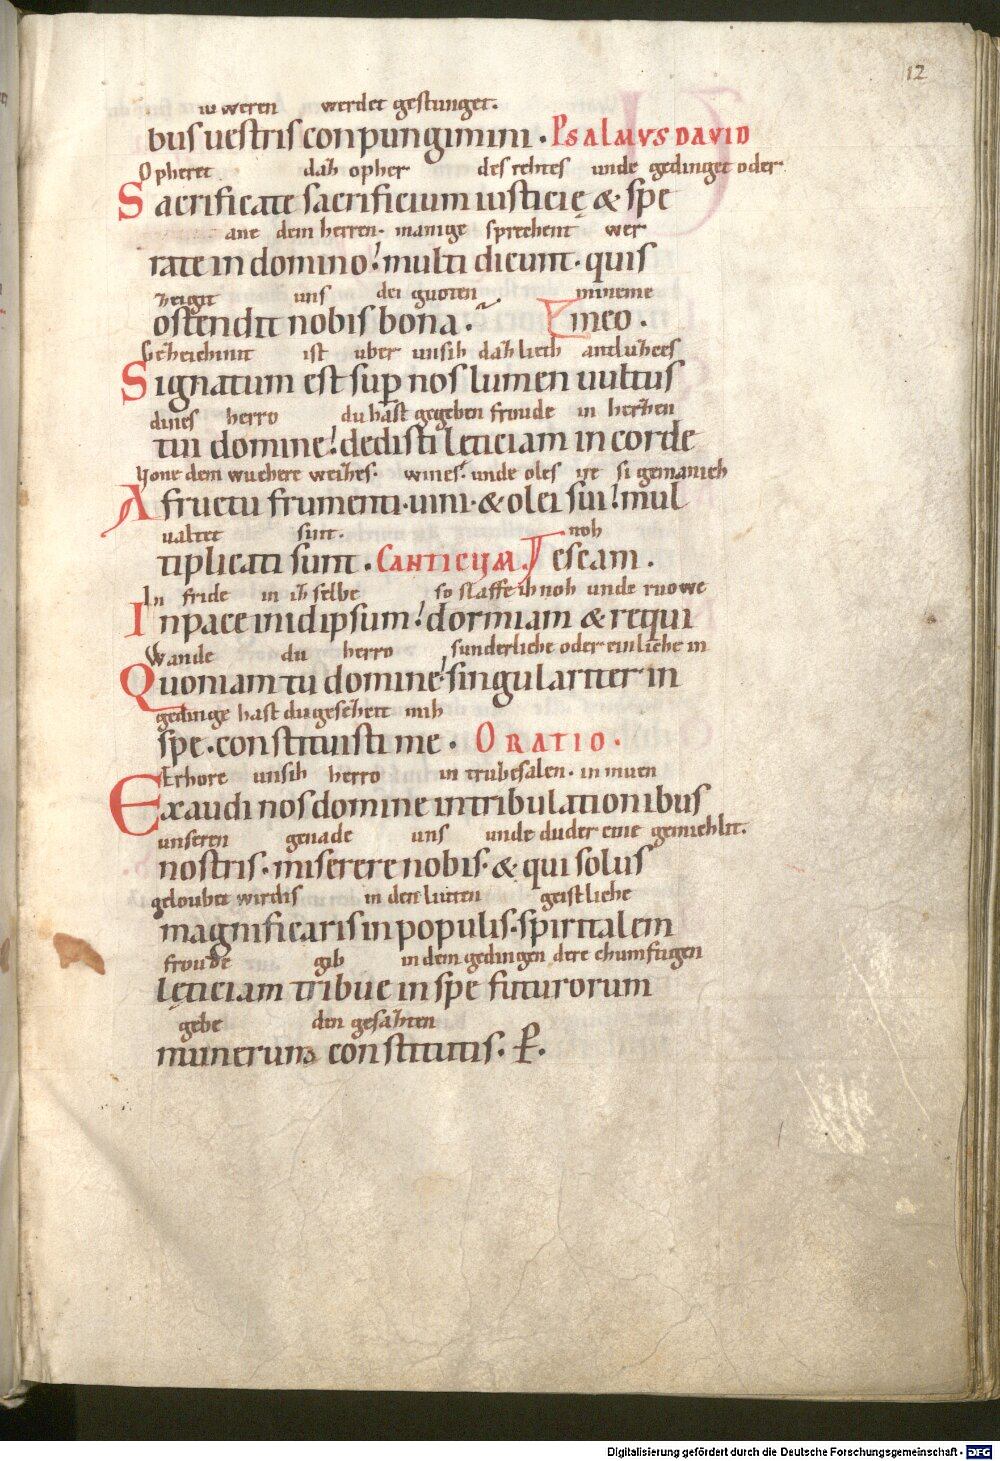 12
iu weren werdet gestunget.
bus uestris conpungimini. PSALMVS DAVID
Opheret daz opher des rehtes unde gedinget oder
Sacrificate sacrificium iusticię & spe
ane dem herren. manige sprechent wer
rate in domino! multi dicunt. quis
zeigit uns dei guoten mineme
ostendit nobis bona. meo.
Gezeichinit ist uber unsih daz lieth antluzzes
Signatum est sup nos lumen uultus
dines herro du hast gegeben froude in herzen
tui domine! dedisti leticiam in corde
Uone dem wuchere weizes. wines. unde oles ire si gemanich
A fructu frumenti. uini. & olei sui! mul
ualtet sint. noh
tiplicati sunt. CANTICUM. escam.
In fride in ih selbe so slaffe ih noh unde ruowe
In pace in idipsum! dormiam & requi
Wande du herro sunderliche oder einliche in
Quoniam tu domine! singulariter in
gedinge hast du gesezzett mih
spe. constituisti me. ORATIO.
Erhore unsih herro in trubesalen. in inuen
Exaudi nos domine in tribulationibus
unseren genade uns unde du der eine gemichlit.
nostris. miserere nobis. & qui solus
geloubet wirdis in den luiten geistliche
magnificaris in populis. spiritalem
froude gib in dem gedingen dere chumftigen
lęticiam tribue in spe futurorum
gebe den gesazten
munerum constitutis. P.
Digitalisierung gefördert durch die Deutsche Forschungsgemeinschaft - DFG